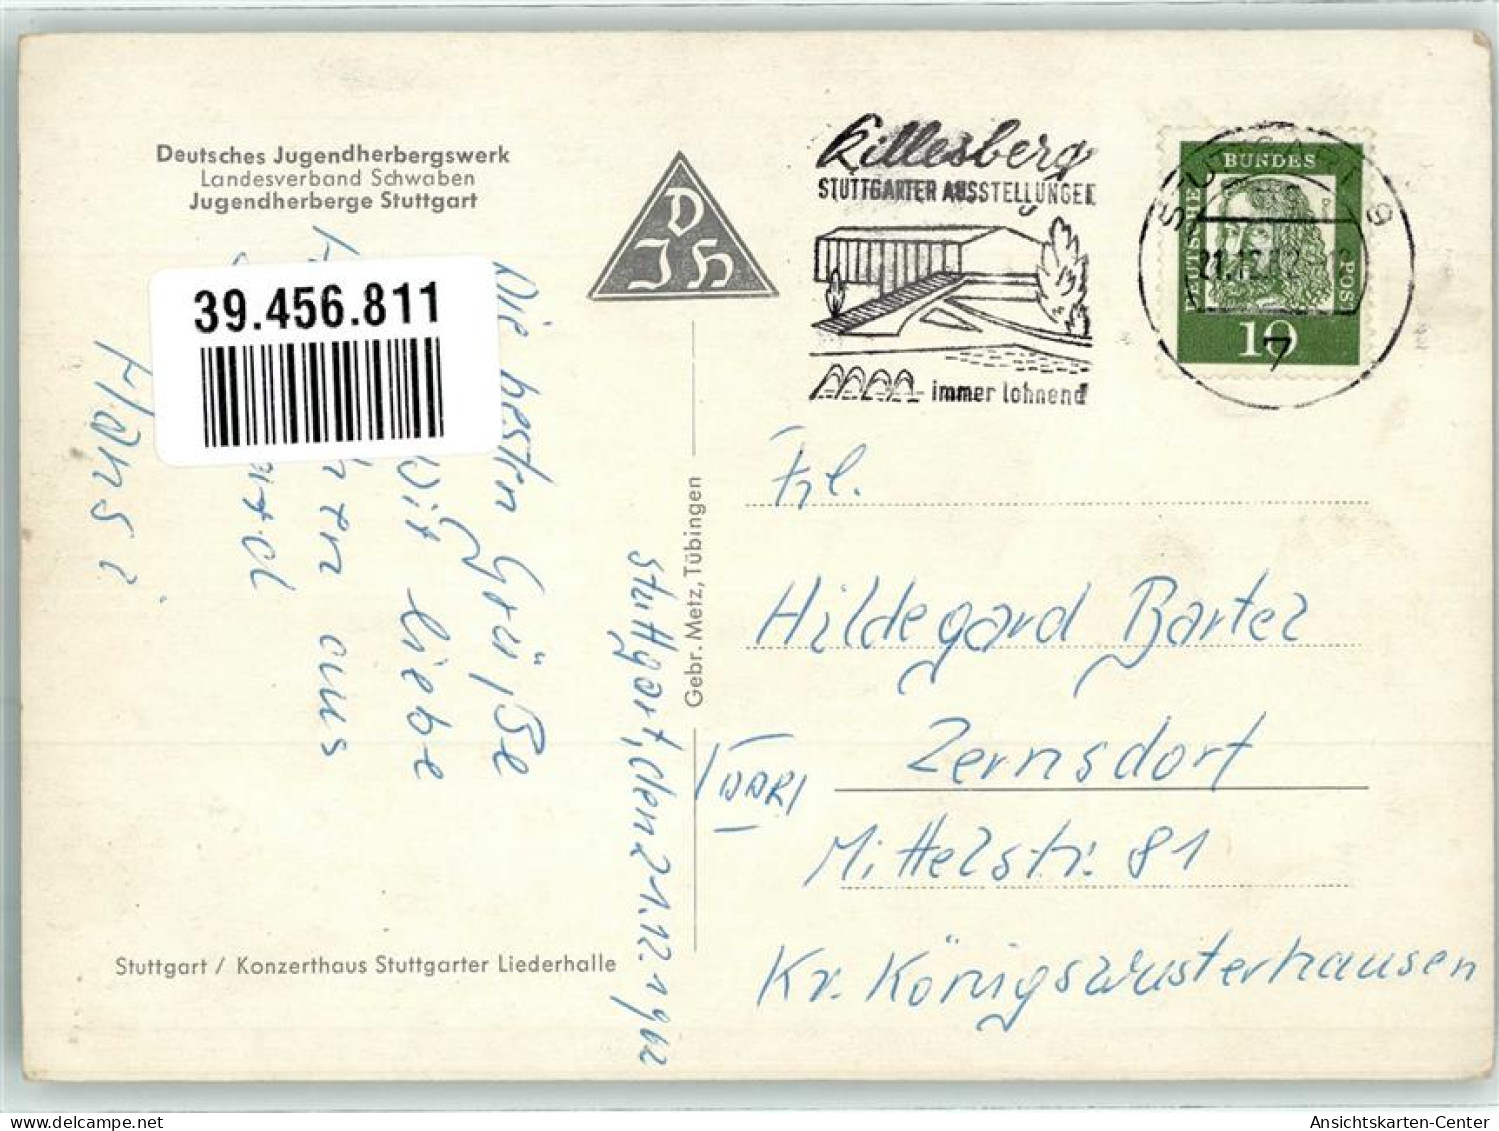 Deutsches Jugendherbergswerk
Landesverband Schwaben
Jugendherberge Stuttgart
DJH
39.456.811
Killesberg
STUTTGARTER AUSSTELLUNGEN
immer lohnend
DEUTSCHE BUNDESPOST
10
STUTTGART 9
21.12.62
7
Stuttgart, den 21.12.1962
Die besten Grüße
liebe
aus
Hans
Gebr. Metz, Tübingen
Frl.
Hildegard Bartel
Zernsdorf
DDR
Mittelstr. 81
Kr. Königswusterhausen
Stuttgart / Konzerthaus Stuttgarter Liederhalle
Ansichtskarten-Center